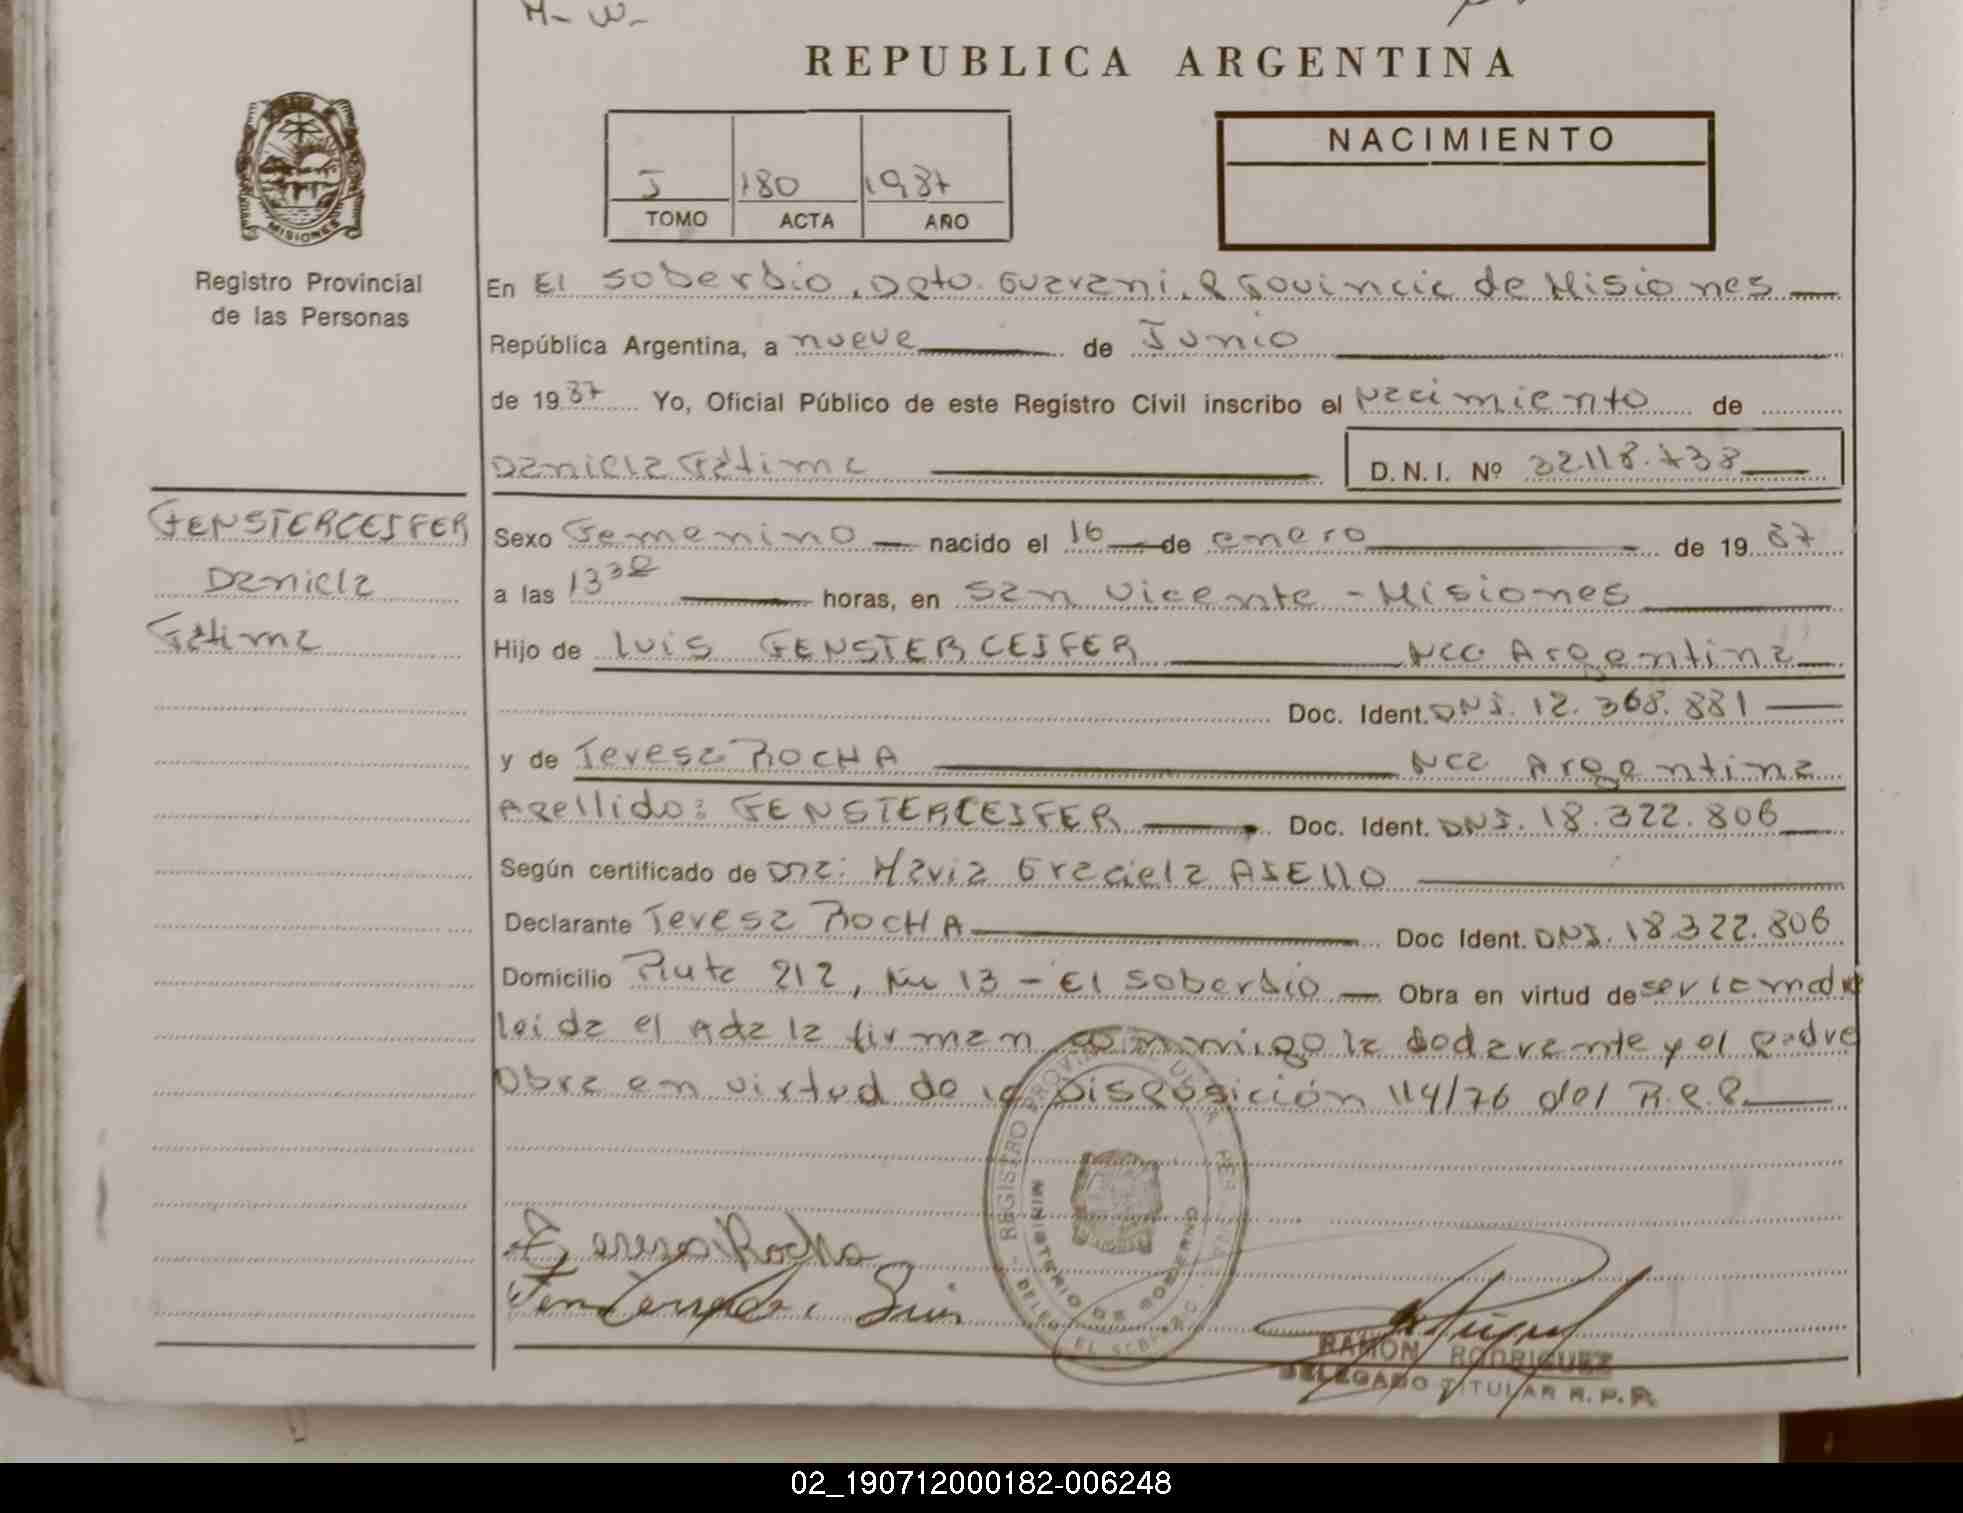 H- W-
REPUBLICA ARGENTINA
J 180 1987
TOMO ACTA AÑO
NACIMIENTO
MISIONES
Registro Provincial
de las Personas
En El Soberbio, Dpto. Guarani, Provincia de Misiones
República Argentina, a nueve de Junio
de 1987 Yo, Oficial Público de este Registro Civil inscribo el Nacimiento de
Daniela Fátima D.N.I. Nº 32.118.738
FENSTERCEIFER
Daniela
Fátima
Sexo Femenino nacido el 16 de enero de 1987
a las 13 30 horas, en San Vicente - Misiones
Hijo de Luis FENSTERCEIFER Nac Argentina
Doc. Ident. DNI. 12.368.881
y de Teresa ROCHA Nac Argentina
Apellido: FENSTERCEIFER Doc. Ident. DNI. 18.322.806
Según certificado de Dña: Maria Graciela ASELLO
Declarante Teresa ROCHA Doc Ident. DNI. 18.322.806
Domicilio Ruta 212, Km 13 - El Soberbio Obra en virtud de ser la madre
leida el Acta la firman conmigo la declarante y el padre
Obra en virtud de la Disposición 114/76 del R.P.P.
Teresa Rocha
Luis
REGISTRO PROVINCIAL
MINISTERIO DE GOBIERNO
EL SOBERBIO
RAMON RODRIGUEZ
DELEGADO TITULAR R.P.P.
02_190712000182-006248